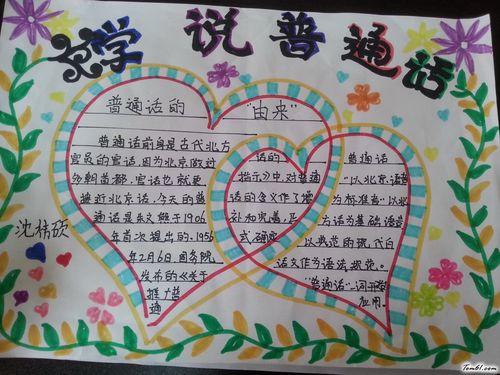 学 说普通话
普通话的 "由来"
普通话前身是古代北方
官员的官话.因为北京做过
多朝首都.官话也就更
接近北京话.今天的普
通话是朱文熊于1906
年首次提出的.1956
年2月6日.国务院
发布的《关于
推广普
通
话的
指示》中.对普通
话的含义作了增
补和完善.正
式确定
普通话
"以北京语音
为标准音.以北
方话为基础语言
以典范的现代白
话文作为语法规范。
"普通话"一词开始
应用.
沈
硕
Tom61.com